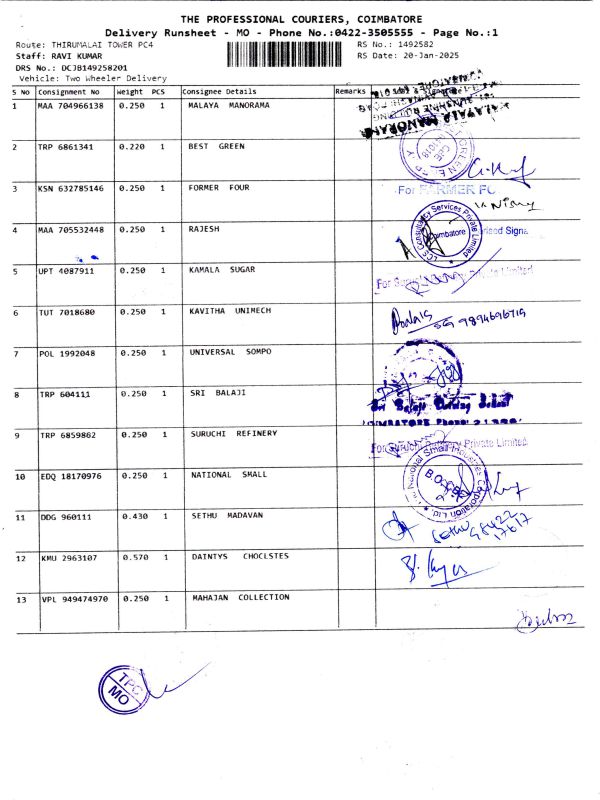 THE PROFESSIONAL COURIERS, COIMBATORE
Delivery Runsheet - MO - Phone No.:0422-3505555 - Page No.:1
Route: THIRUMALAI TOWER PC4 RS No.: 1492582
Staff: RAVI KUMAR RS Date: 20-Jan-2025
DRS No.: DCJB149258201
Vehicle: Two Wheeler Delivery
S No Consignment No Weight PCS Consignee Details Remarks
1 MAA 704966138 0.250 1 MALAYA MANORAMA
MALAYALA MANORAMA
2 TRP 6861341 0.220 1 BEST GREEN
3 KSN 632785146 0.250 1 FORMER FOUR
For FARMER FO
4 MAA 705532448 0.250 1 RAJESH
Consultancy Services Private Limited
Coimbatore
rised Signa
5 UPT 4087911 0.250 1 KAMALA SUGAR
Private Limited
6 TUT 7018680 0.250 1 KAVITHA UNIMECH
9894696719
7 POL 1992048 0.250 1 UNIVERSAL SOMPO
8 TRP 604111 0.250 1 SRI BALAJI
Sri Balaji
COIMBATORE Phone:
9 TRP 6859862 0.250 1 SURUCHI REFINERY
For Suruchi Private Limited
10 EDQ 18170976 0.250 1 NATIONAL SMALL
National Small Industries Corporation Ltd.
B.O.CBE
11 DDG 960111 0.430 1 SETHU MADAVAN
Sethu 98422
17617
12 KMU 2963107 0.570 1 DAINTYS CHOCLSTES
13 VPL 949474970 0.250 1 MAHAJAN COLLECTION
TPC
MO